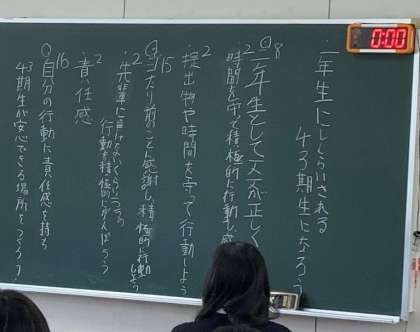 一年生にしんらいされる
43期生になろう
8
◎二年生として天才が正しく
2 時間を守って積極的に行動し感
2
提出物や時間を守って行動しよう
15
◎当たり前のことに感謝し、積極的に行動しよう
2
先輩に負けないくらいの
行動を積極的にがんばろう
2
責任感
16
◎自分の行動に責任感を持ち
43期生が安心できる場所をつくろう
0:00